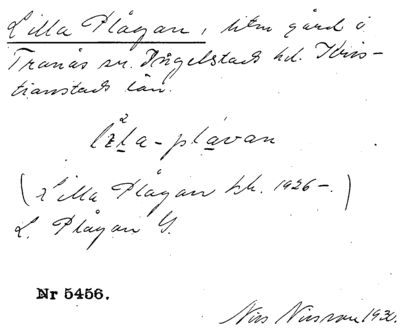 Lilla Plågan, liten gård i
Tranås sn. Ingelstads hd. Kris-
tianstads län.
la-plávan
(Lilla Plågan kbk. 1926-.)
L. Plågan G.
Nr 5456.
Nils Nilsson 1930.